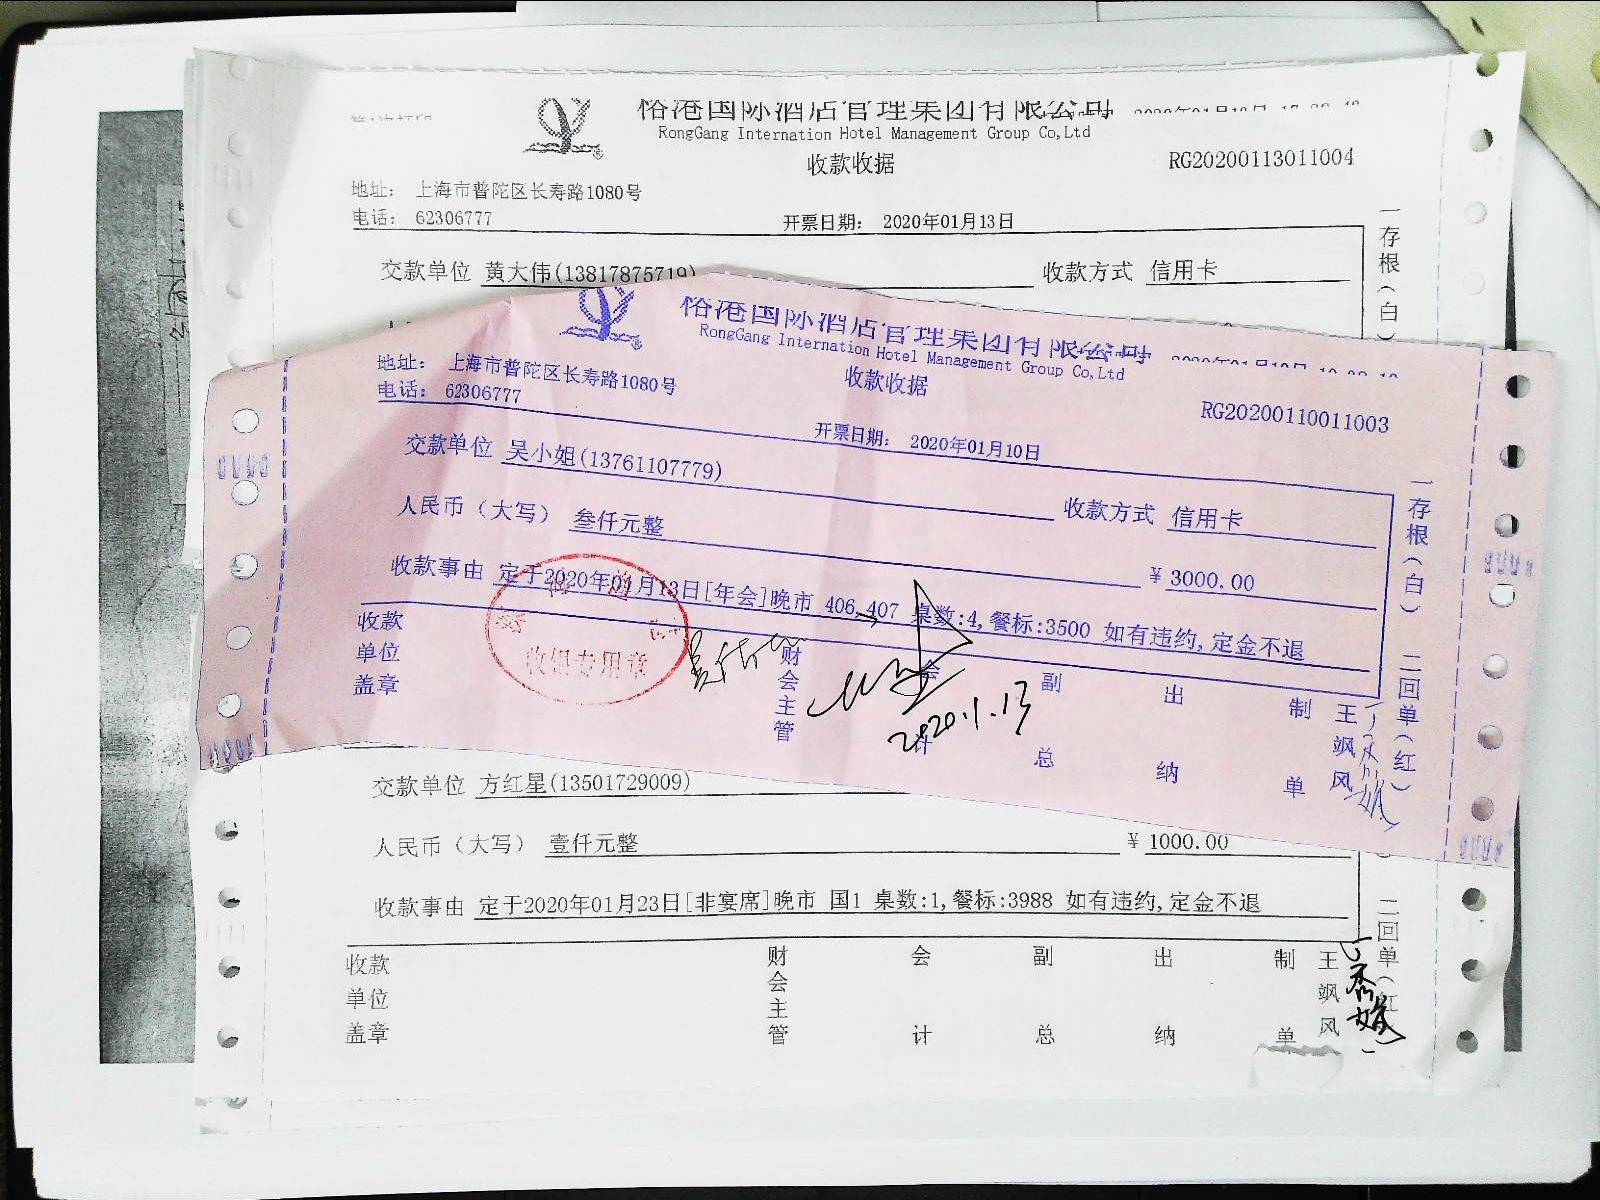 裕港国际酒店管理集团有限公司
RongGang Internation Hotel Management Group Co,Ltd
收款收据
RG20200113011004
地址： 上海市普陀区长寿路1080号
电话： 62306777
开票日期： 2020年01月13日
交款单位 黄大伟(13817875719)
收款方式 信用卡
一存根(白)
裕港国际酒店管理集团有限公司
RongGang Internation Hotel Management Group Co,Ltd
收款收据
RG20200110011003
地址： 上海市普陀区长寿路1080号
电话： 62306777
开票日期： 2020年01月10日
交款单位 吴小姐(13761107779)
收款方式 信用卡
人民币（大写） 叁仟元整
¥ 3000.00
收款事由 定于2020年01月13日[年会]晚市 406,407 桌数:4,餐标:3500 如有违约,定金不退
收款单位盖章
收银专用章
财会主管
会计
副总
出纳
制单
王飒风
2020.1.13
一存根(白)
二回单(红)
交款单位 方红星(13501729009)
人民币（大写） 壹仟元整
¥ 1000.00
收款事由 定于2020年01月23日[非宴席]晚市 国1 桌数:1,餐标:3988 如有违约,定金不退
二回单(红)
收款单位盖章
财会主管
会计
副总
出纳
制单
王飒风